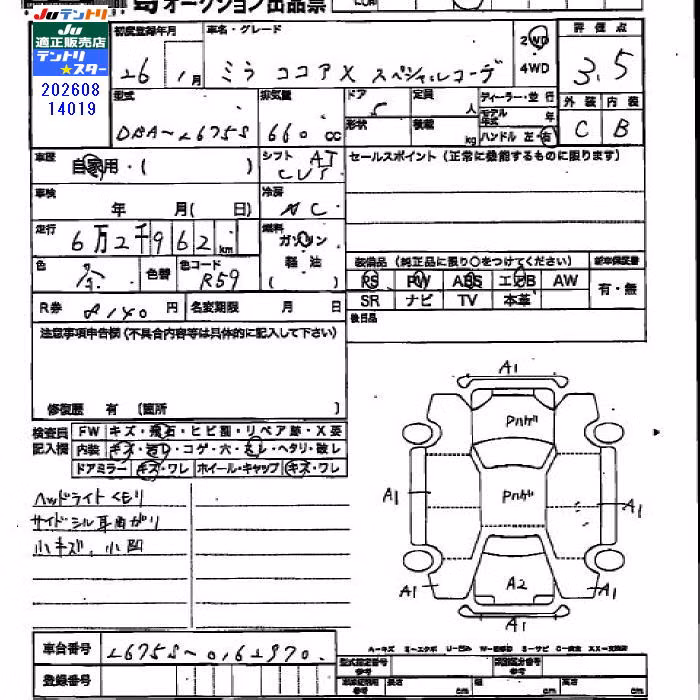 Juテントリ
Ju
適正販売店
テントリ
★スター
202608
14019
オークション出品票
初度登録年月
26年1月
車名・グレード
ミラ ココアX スペシャルコーデ
2WD
4WD
評価点
3.5
型式
DBA-L675S
排気量
660cc
ドア
5
定員
人
形状
積載
kg
ディーラー・並行
モデル年式
年
ハンドル 左・右
外装
内装
C
B
車歴
自家用・( )
シフト
AT
CVT
セールスポイント (正常に機能するものに限ります)
車検
年 月( 日)
冷房
AC
走行
6万2千962km
燃料
ガソリン
軽油
( )
色
色替
色コード
R59
装備品 (純正品に限り○をつけてください)
新車保証書
PS PW ABS エアB AW
SR ナビ TV 本革
有・無
R券
8140円
名変期限 月 日
後日品
注意事項申告欄(不具合内容等は具体的に記入して下さい)
修復歴 有 〔箇所 〕
検査員
記入欄
FW キズ・飛石・ヒビ割・リペア跡・X要
内装 キズ・汚レ・コゲ・穴・スレ・ヘタリ・破レ
ドアミラー キズ・ワレ ホイール・キャップ キズ・ワレ
ヘッドライトくもり
サイドシル耳曲がり
小キズ、小凹
A1
Pハゲ
Pハゲ
A1
A1
A1
A2
A1
A1
車台番号
L675S-0162970
登録番号
A-キズ E-エクボ U-凹み W-補修跡 S-サビ C-腐食 XX-交換済
型式指定番号
類別区分番号
参考
長さ cm
幅 cm
高さ cm